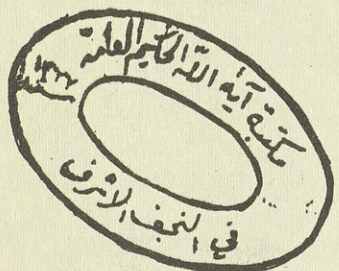 مكتبة آية الله الحكيم العامة
في النجف الاشرف